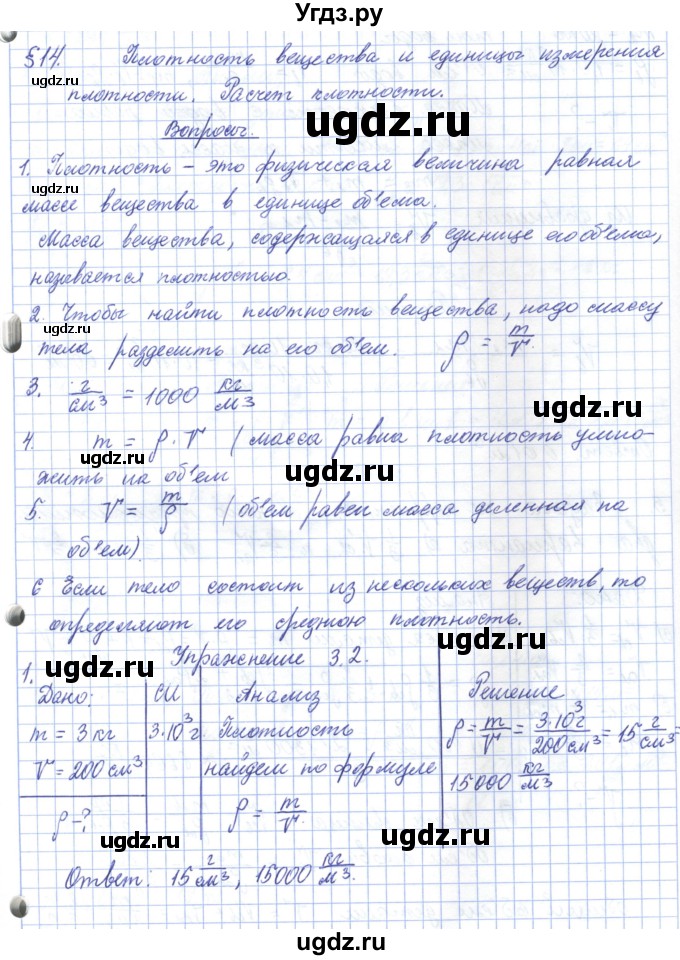 Угдз.ру
§14. Плотность вещества и единицы измерения
ugdz.ru
плотности. Расчет плотности.
ugdz.ru
Вопросы.
ugdz.ru
1. Плотность – это физическая величина равная
массе вещества в единице об'ема.
Масса вещества, содержащаяся в единице его об'ема,
называется плотностью.
ugdz.ru
2. Чтобы найти плотность вещества, надо массу
ugdz.ru
тела разделить на его об'ем. ρ = m/V.
3. г/см3 = 1000 кг/м3
ugdz.ru
4. m = ρ · V (масса равна плотность умно-
ugdz.ru
жить на об'ем
ugdz.ru
5. V = m/ρ (об'ем равен масса деленная на
об'ем).
ugdz.ru
6 Если тело состоит из нескольких веществ, то
определяют его среднюю плотность.
ugdz.ru
Упражнение 3.2.
ugdz.ru
1.
Дано: СИ Анализ Решение
m = 3 кг 3·10³ г Плотность ρ = m/V = 3·10³ г/200 см3 = 15 г/см3 =
V = 200 см3 найдем по формуле 15000 кг/м3
ugdz.ru
ρ – ? ρ = m/V.
ugdz.ru
ugdz.ru
Ответ: 15 г/см3, 15000 кг/м3.
ugdz.ru
ugdz.ru
ugdz.ru